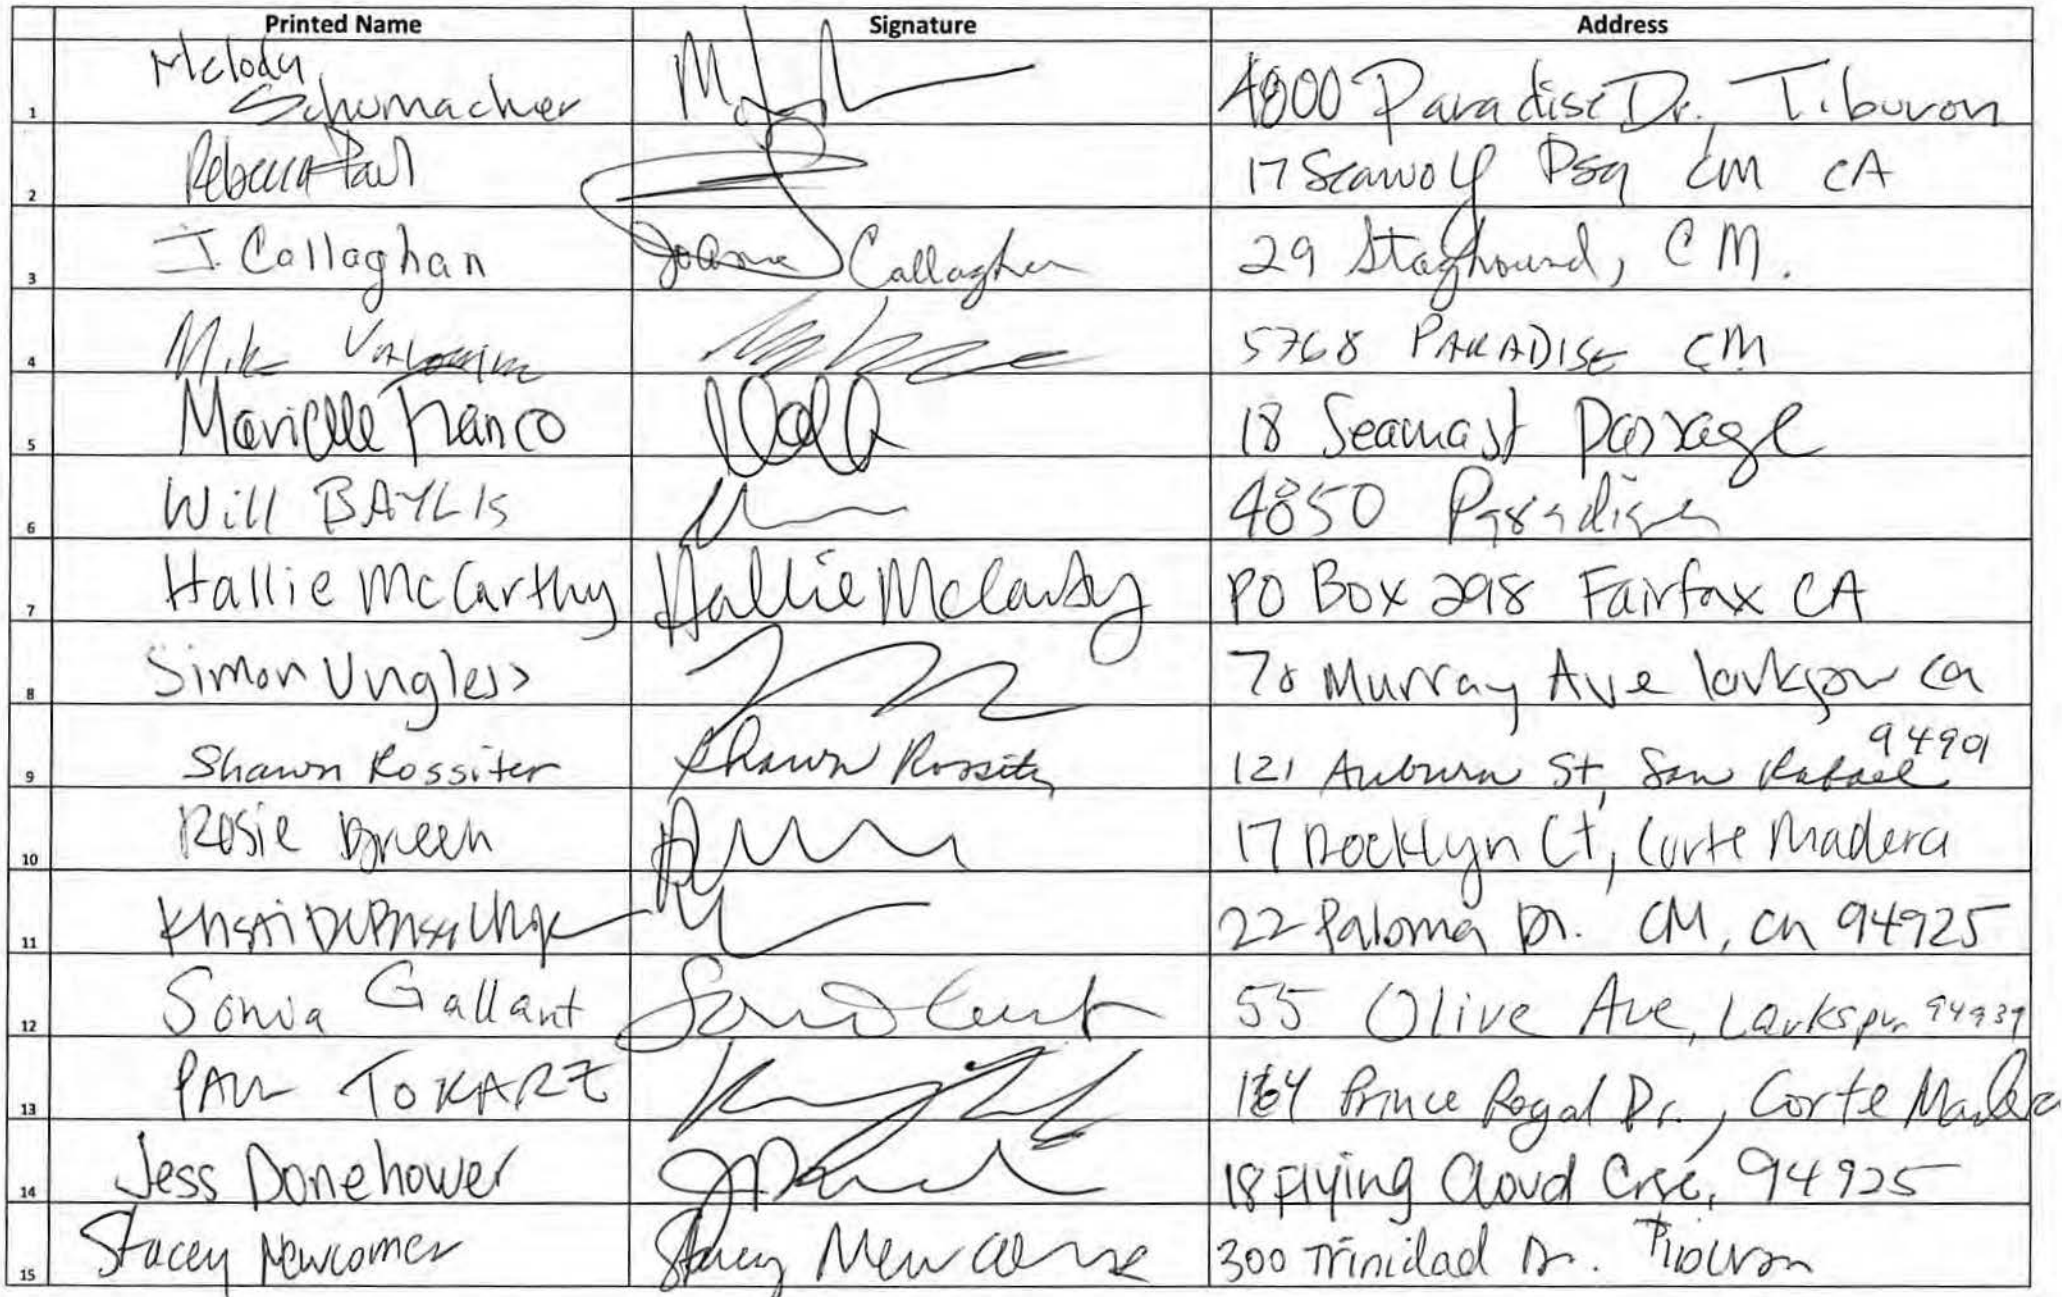 Printed Name Signature Address
1 Melody Schumacher 4800 Paradise Dr., Tiburon
2 Rebecca Paul 17 Seawolf Psg CM CA
3 J. Callaghan Joanne Callaghan 29 Staghound, CM.
4 Mike 5768 PARADISE CM
5 Marielle Franco 18 Seamast Passage
6 Will BAYLIS 4850 Paradise
7 Hallie McCarthy Hallie McCarthy PO Box 298 Fairfax CA
8 Simon Ungless 78 Murray Ave larkspur ca
9 Shawn Rossiter Shawn Rossiter 121 Auburn St, San Rafael 94901
10 Rosie Breen 17 Rocklyn Ct, Corte Madera
11 22 Paloma Dr. CM, CA 94925
12 Sonia Gallant 55 Olive Ave, Larkspur 94939
13 PAUL TOKARZ 164 Prince Royal Dr., Corte Madera
14 Jess Donehower 18 Flying Cloud Crse, 94925
15 Stacey Newcomer Stacey Newcomer 300 Trinidad Dr. Tiburon